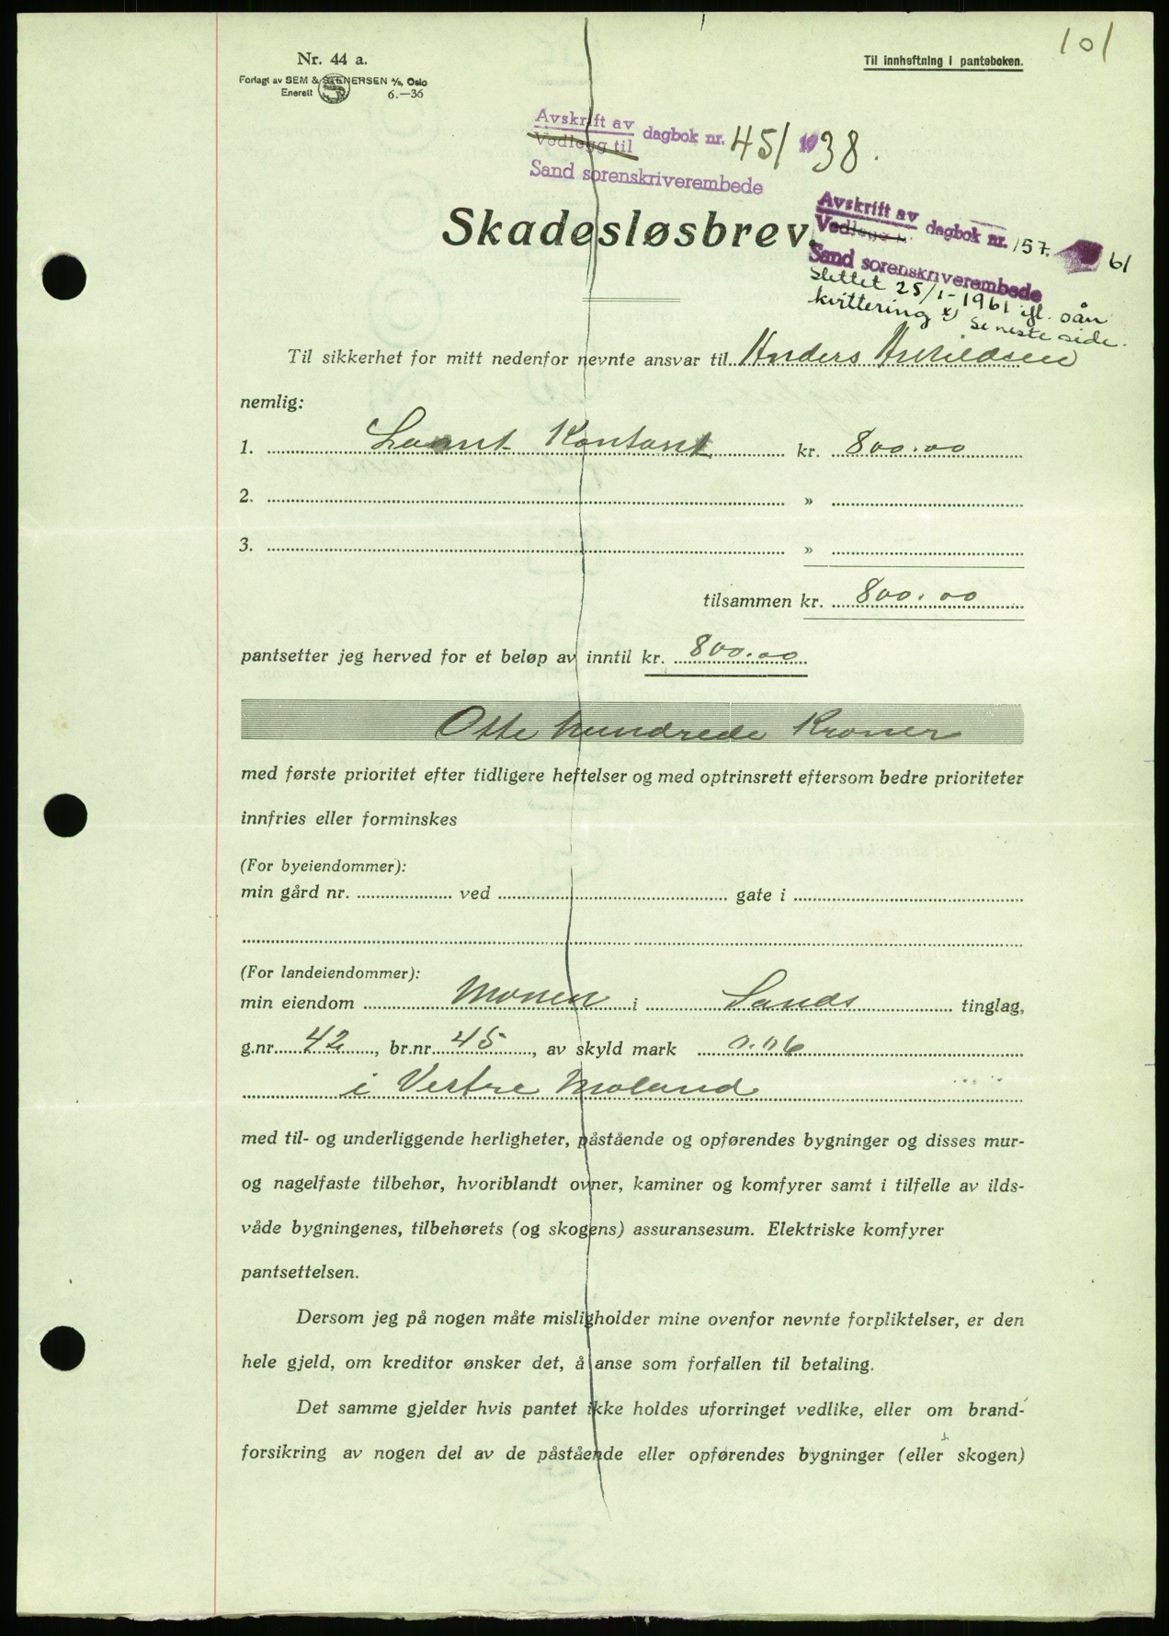 101
Nr. 44 a.
Til innheftning i panteboken.
Forlagt av SEM & STENERSEN A/S, Oslo
Enerett 6.—36
Avskrift av
Vedlegg til
dagbok nr. 45/1938.
Sand sorenskriverembede
Skadesløsbrev.
Avskrift av
dagbok nr. 157. 61
Sand sorenskriverembede
Slettet 25/1-1961 ifl. sån
kvittering x) Se neste side.
Til sikkerhet for mitt nedenfor nevnte ansvar til Anders Arvildsen
nemlig:
1. Laant Kontant kr. 800.00
2. »
3. »
tilsammen kr. 800.00
pantsetter jeg herved for et beløp av inntil kr. 800.00
Otte hundrede Kroner
med første prioritet efter tidligere heftelser og med optrinsrett eftersom bedre prioriteter
innfries eller forminskes
(For byeiendommer):
min gård nr. ved gate i
(For landeiendommer):
min eiendom Monen i Sands tinglag,
g.nr. 42, br.nr. 45, av skyld mark 0.06
i Vestre Moland
med til- og underliggende herligheter, påstående og opførendes bygninger og disses mur-
og nagelfaste tilbehør, hvoriblandt ovner, kaminer og komfyrer samt i tilfelle av ilds-
våde bygningenes, tilbehørets (og skogens) assuransesum. Elektriske komfyrer
pantsettelsen.
Dersom jeg på nogen måte misligholder mine ovenfor nevnte forpliktelser, er den
hele gjeld, om kreditor ønsker det, å anse som forfallen til betaling.
Det samme gjelder hvis pantet ikke holdes uforringet vedlike, eller om brand-
forsikring av nogen del av de påstående eller opførendes bygninger (eller skogen)